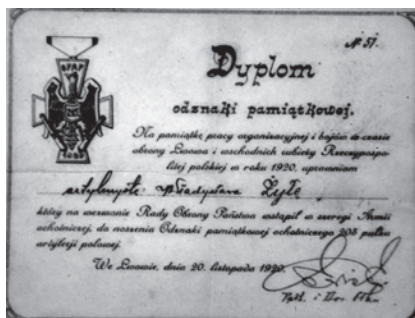 № 51.
Dyplom
odznaki pamiątkowej.
Na pamiątkę pracy organizacyjnej i bojów w czasie
obrony Lwowa i wschodnich rubieży Rzeczypospo-
litej polskiej w roku 1920, uprawniam
Władysława Żyłę
który na wezwanie Rady Obrony Państwa wstąpił w szeregi Armii
ochotniczej, do noszenia Odznaki pamiątkowej ochotniczego 205 pułku
artylerji polowej.
We Lwowie, dnia 20. listopada 1920.